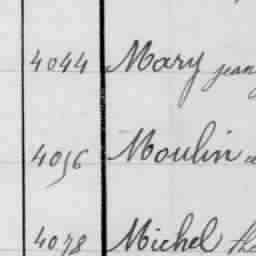 4044 Mary jean
4056 Moulin
4078 Michel